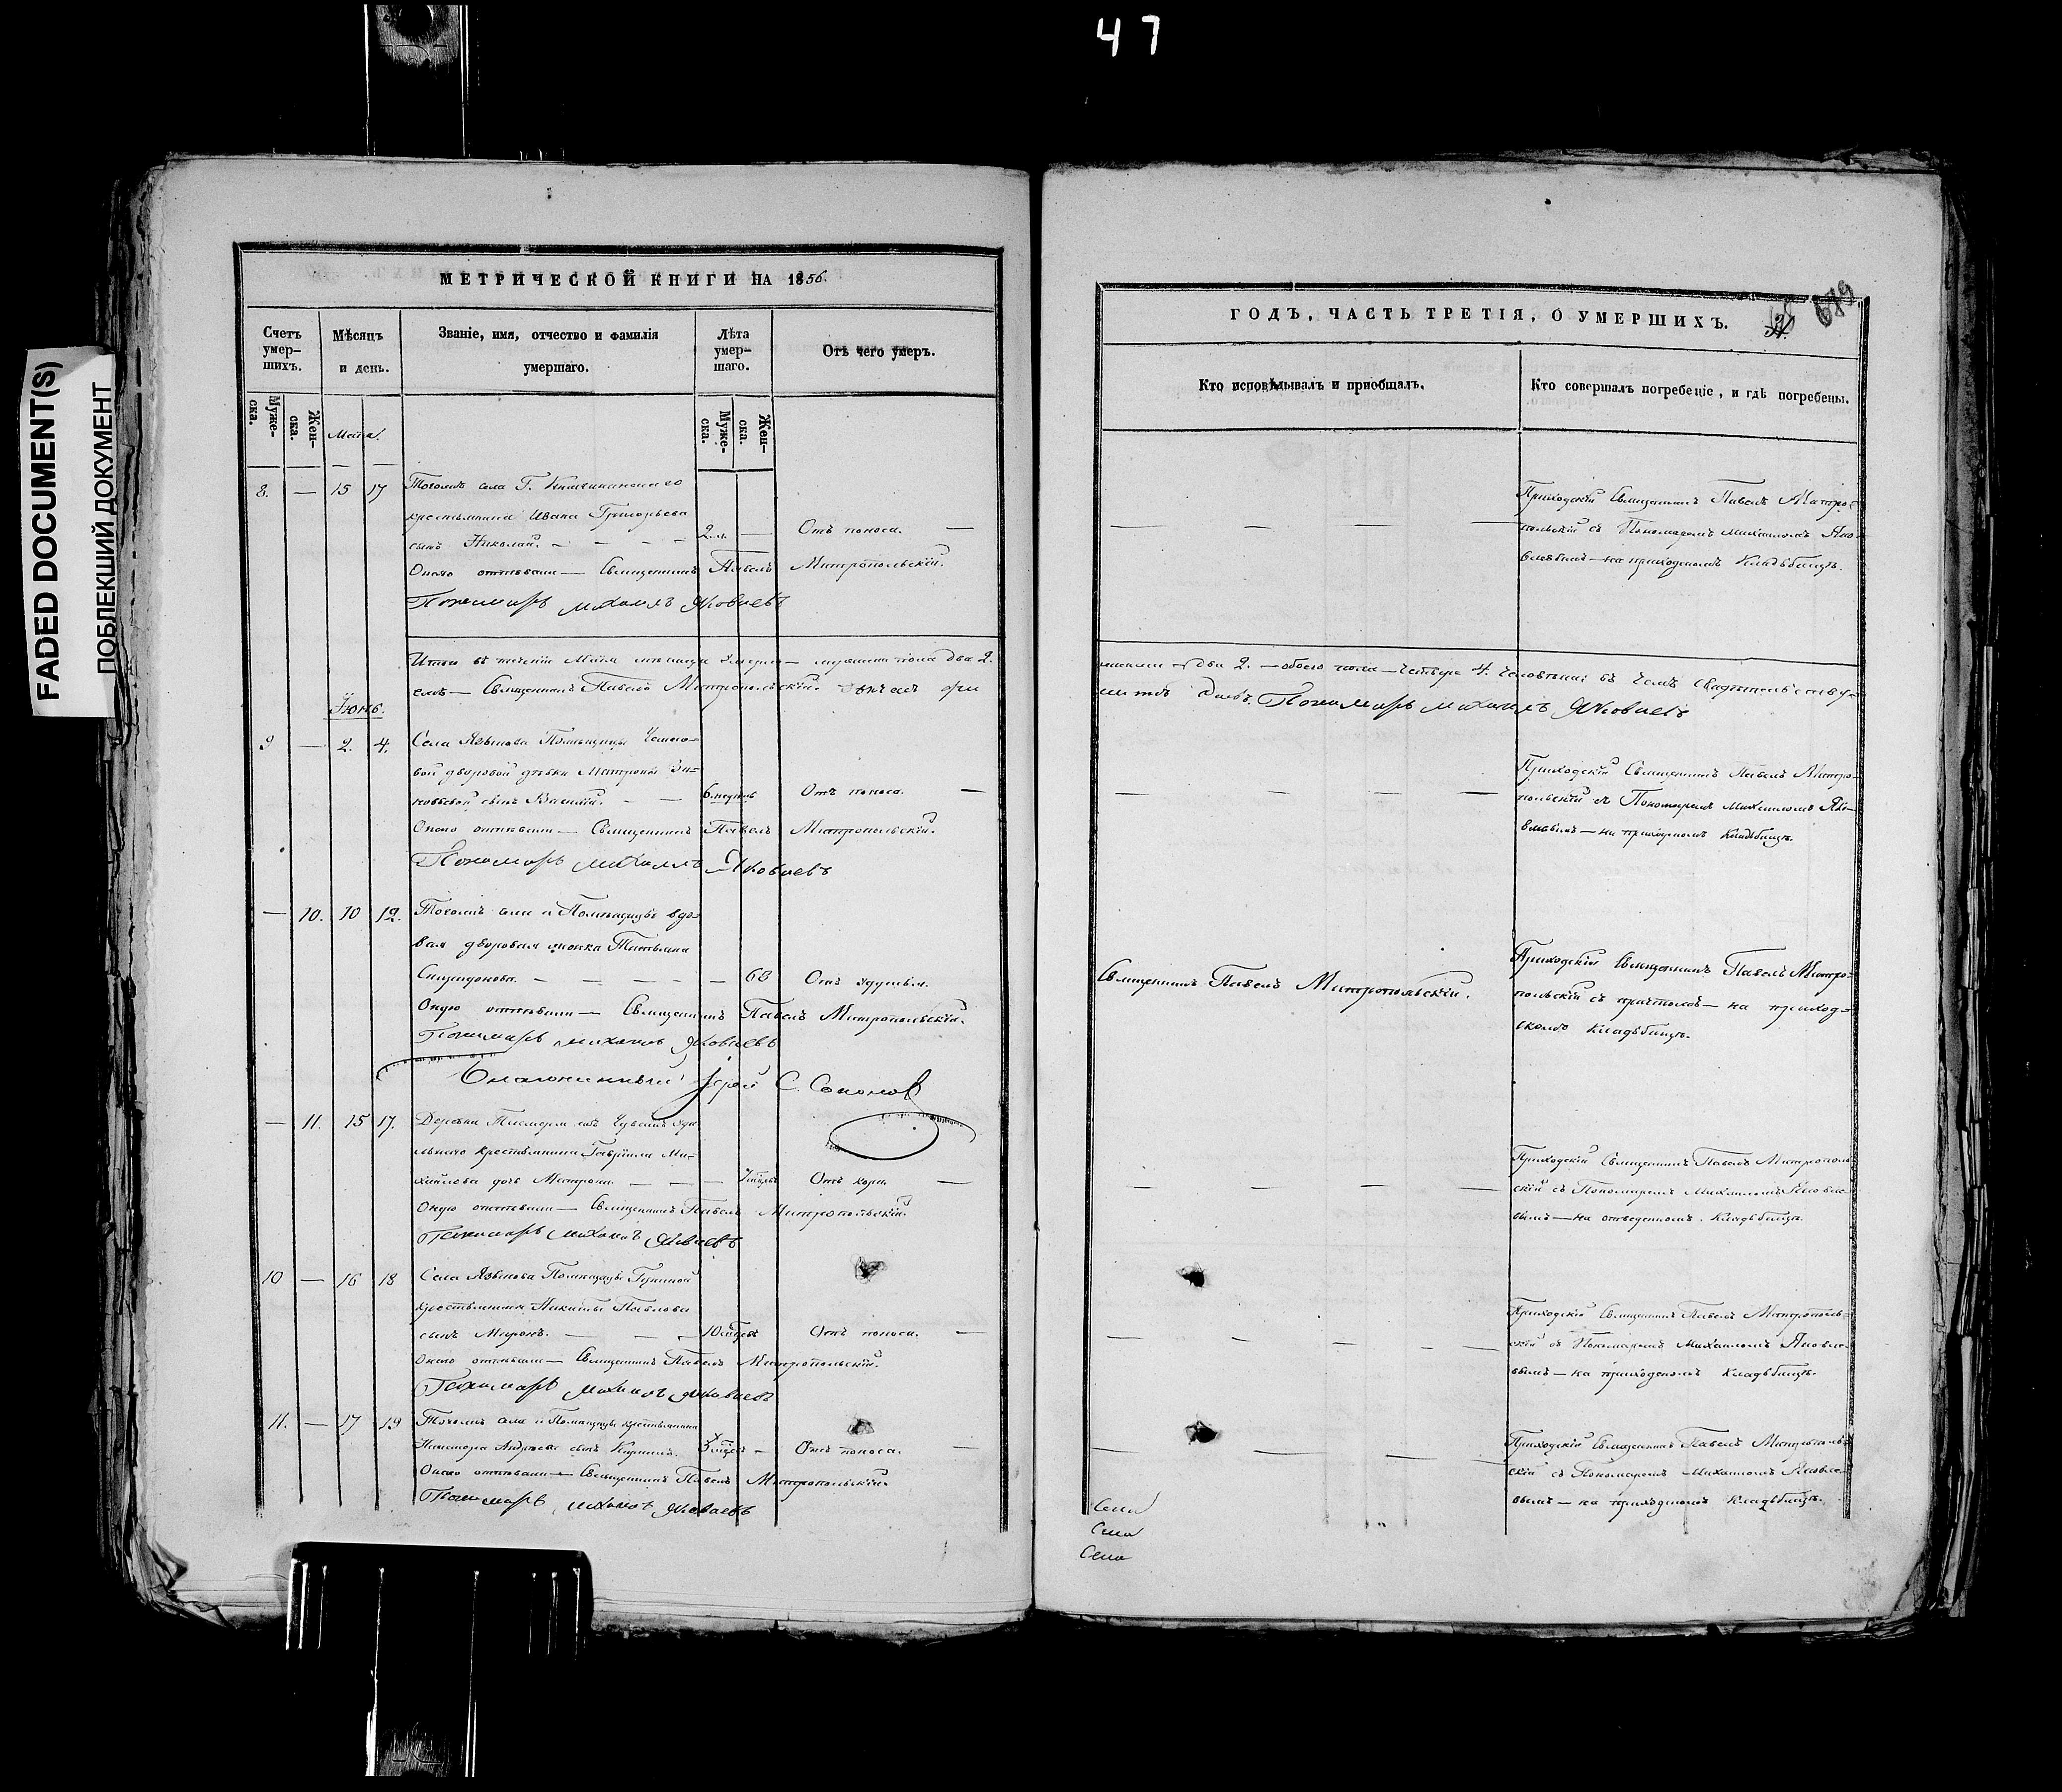 47
FADED DOCUMENT(S)
ПОБЛЕКШИЙ ДОКУМЕНТ
МЕТРИЧЕСКОЙ КНИГИ НА 1856.
Счетъ умер-шихъ.
Мѣсяцъ и день.
Званіе, имя, отчество и фамилія умершаго.
Лѣта умер-шаго.
Отъ чего умеръ.
Муже-ска.
Жен-ска.
Маія.
Муже-ска.
Жен-ска.
8. — 15 17 Тогожъ села Г.
крестьянина Ивана Григорьева
сынъ Николай. — 2 — Отъ поноса. —
Онаго отпѣвали — Священникъ Павелъ Митропольскій.
Пономарь Михаилъ Яковлевъ
Итого въ теченіи Маія мѣсяца умерло — мужеска пола два 2.
Священникъ Павелъ Митропольскій.
Іюнь.
9 — 2. 4. Села Языкова Помѣщицы
вой дворовой дѣвки Матроны Зи-
новьевой сынъ Василій. — — 6. недѣль Отъ поноса. —
Онаго отпѣвали — Священникъ Павелъ Митропольскій.
Пономарь Михаилъ Яковлевъ
— 10. 10 12. Тогожъ села и Помѣщицы вдо-
вая дворовая женка Татьяна
Спиридонова. — — — — — 68 Отъ удушья.
Оную отпѣвали — Священникъ Павелъ Митропольскій.
Пономарь Михаилъ Яковлевъ
Благочинный Іерей С. Соколовъ
— 11. 15 17. Деревни Чувашъ удѣ
льнаго крестьянина Гавріила Ми-
хайлова дочь Матрона. — — — Отъ кори. —
Оную отпѣвали — Священникъ Павелъ Митропольскій.
Пономарь Михаилъ Яковлевъ
10 — 16 18 Села Языкова Помѣщицы
крестьянина Никиты Павлова
сынъ Миронъ. — — — 10 Отъ поноса. —
Онаго отпѣвали — Священникъ Павелъ Митропольскій.
Пономарь Михаилъ Яковлевъ
11. — 17 19 Тогожъ села и Помѣщицы крестьянина
Андреева сынъ Кириллъ. 3 — Отъ поноса. —
Онаго отпѣвали — Священникъ Павелъ Митропольскій.
Пономарь Михаилъ Яковлевъ
ГОДЪ, ЧАСТЬ ТРЕТІЯ, О УМЕРШИХЪ.
679
Кто исповѣдывалъ и пріобщалъ.
Кто совершалъ погребеніе, и гдѣ погребены.
Приходскій Священникъ Павелъ Митро-
польскій съ Пономаремъ Михаиломъ Яко-
влевымъ — на приходскомъ Кладбищѣ.
женска — два 2. — обоего пола — четыре 4. человѣка; въ чемъ свидѣтельству-
Пономарь Михаилъ Яковлевъ
Приходскій Священникъ Павелъ Митро-
польскій съ Пономаремъ Михаиломъ Яко-
влевымъ — на приходскомъ Кладбищѣ.
Священникъ Павелъ Митропольскій.
Приходскій Священникъ Павелъ Митро-
польскій съ причтомъ — на приход-
скомъ Кладбищѣ.
Приходскій Священникъ Павелъ Митрополь-
скій съ Пономаремъ Михаиломъ Яковле-
вымъ — на отведенномъ Кладбищѣ.
Приходскій Священникъ Павелъ Митрополь-
скій съ Пономаремъ Михаиломъ Яковле-
вымъ — на приходскомъ Кладбищѣ.
Приходскій Священникъ Павелъ Митрополь-
скій съ Пономаремъ Михаиломъ Яковле-
вымъ — на приходскомъ Кладбищѣ.
Села
Села
Села